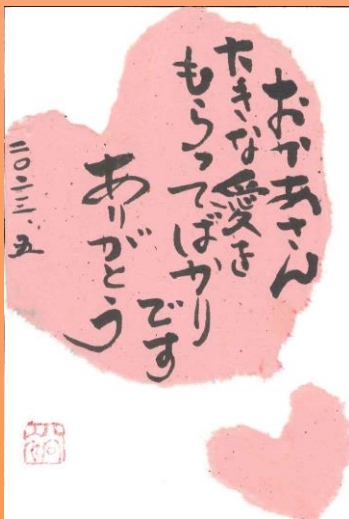 おかあさん
大きな愛を
もらってばかり
です
ありがとう
二〇二三・五